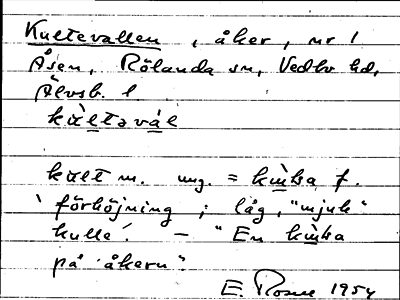 Kultevallen, åker, nr 1
Åsen, Rölanda sn, Vedbo hd,
Älvsb. l.
kɯ̀ltəvàl
kɯlt m. ung. = kɯ̀ba f.
'förhöjning; låg, "mjuk"
kulle'. – "En kɯ̀ba
på åkern".
E. Rosne 1954